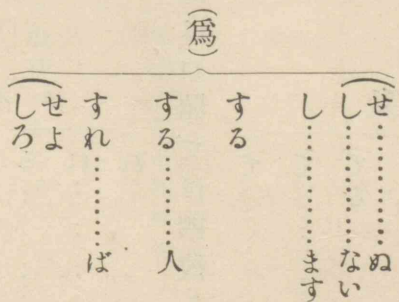 （爲）
せ………ぬ
し………ない
し………ます
する
する………人
すれ………ば
せよ
しろ